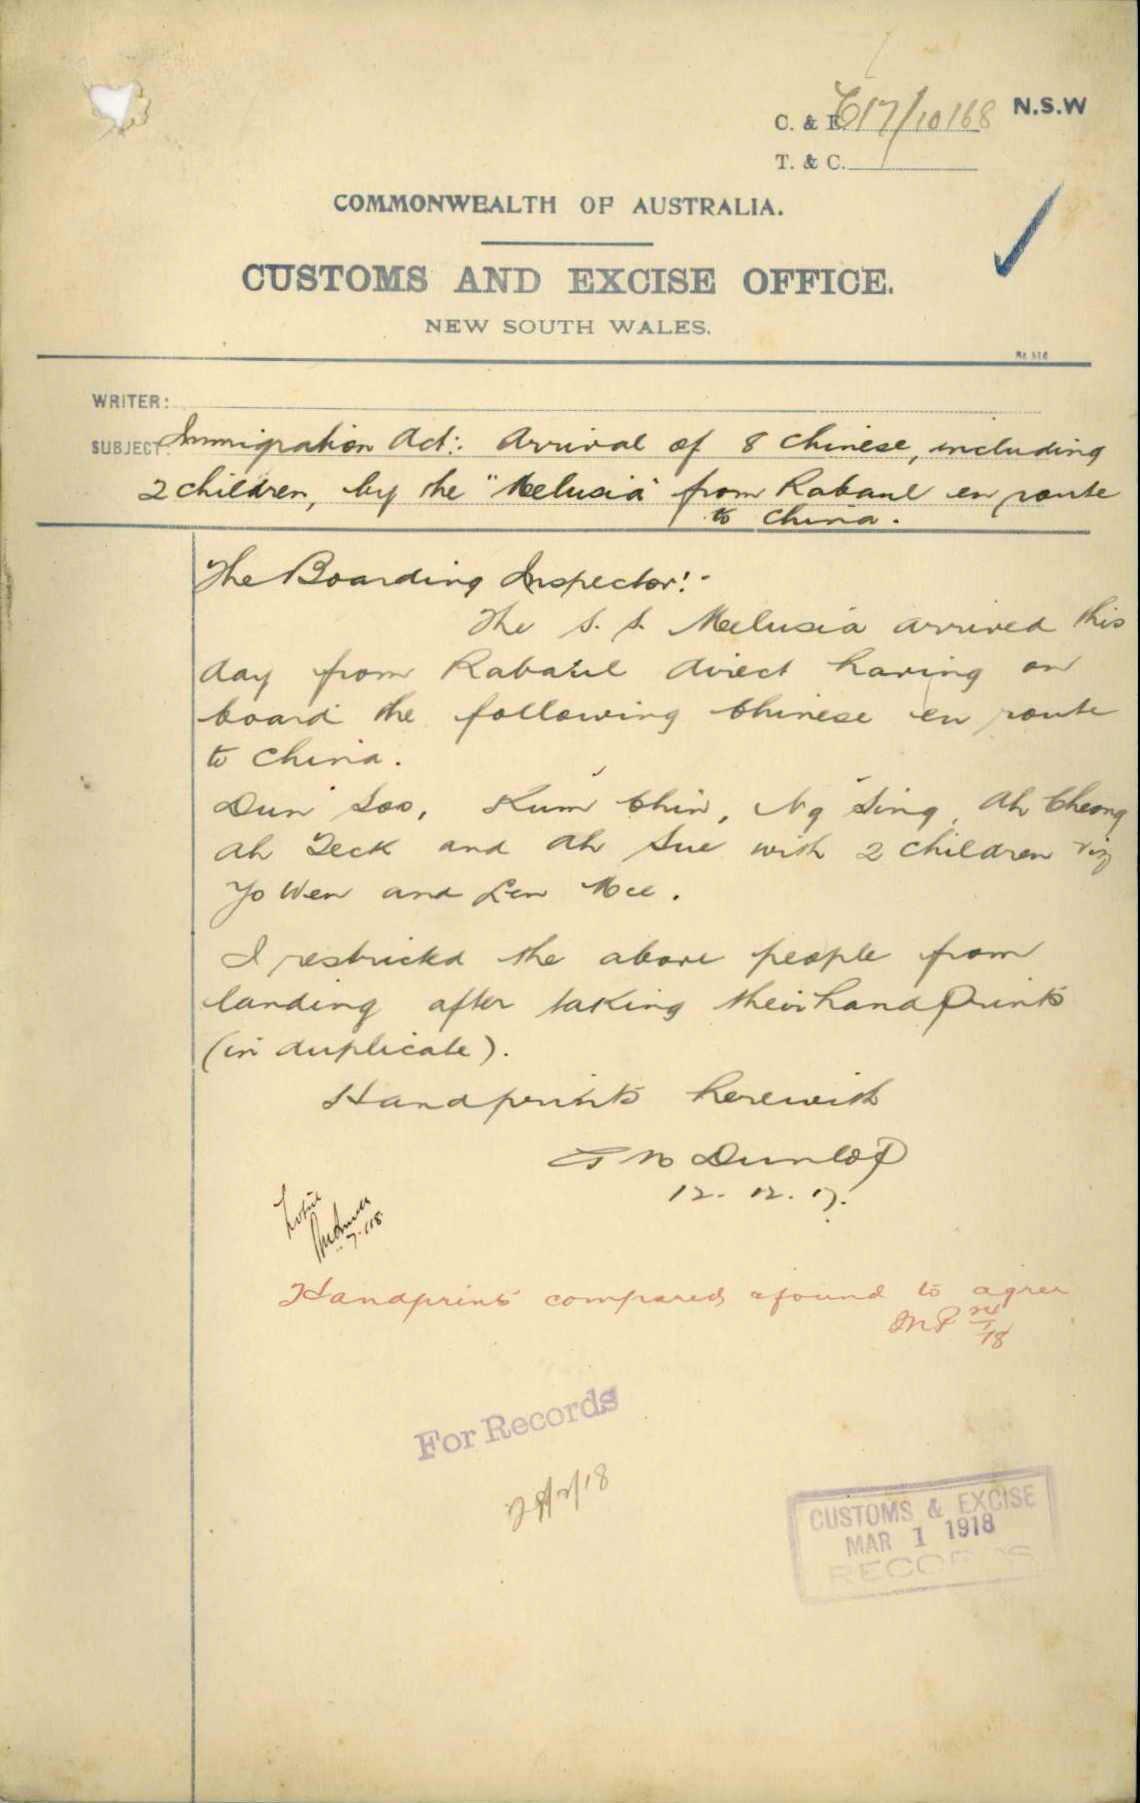 C. & E. C17/10168 N.S.W
T. & C.
COMMONWEALTH OF AUSTRALIA.
CUSTOMS AND EXCISE OFFICE.
NEW SOUTH WALES.
WRITER:
SUBJECT: Immigration Act:. Arrival of 8 Chinese, including
2 children, by the "Melusia" from Rabaul en route
to China.
The Boarding Inspector:-
The S. S. Melusia arrived this
day from Rabaul direct having on
board the following Chinese en route
to China.
Dun Soo, Kum Chin, Ng Sing, Ah Cheong
Ah Teck and Ah Sue with 2 children viz
Yo Wen and Len Mee.
I restricted the above people from
landing after taking their handprints
(in duplicate).
Handprints herewith
Dunlop
12. 12. 17.
Handprints compared & found to agree
For Records
CUSTOMS & EXCISE
MAR 1 1918
RECORDS